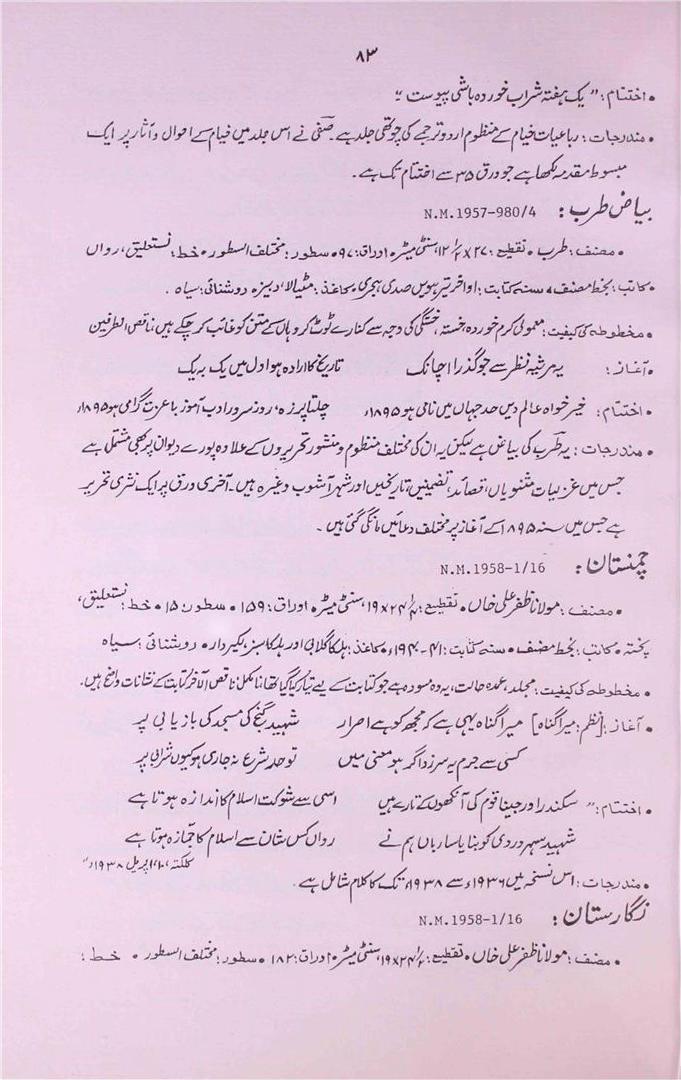 ۸۳
• اختتام: " یک ہفتہ شراب خوردہ باشی پیوست "؛
• مندرجات: رباعیات خیام کے منظوم اردو ترجمے کی چوتھی جلد ہے۔ صفی نے اس جلد میں خیام کے احوال و آثار پر ایک
مبسوط مقدمہ لکھا ہے جو ورق ۳۵ سے اختتام تک ہے۔
بیاض طرب: N.M.1957-980/4
• مصنف: طرب • تقطیع: ۲۷×۱۲/۲ سنٹی میٹر • اوراق: ۹۷ • سطور: مختلف السطور • خط: نستعلیق، رواں
• کاتب: بخط مصنف • سنہ کتابت: اواخر تیرہویں صدی ہجری • کاغذ: مٹیالا، دبیز • روشنائی: سیاہ ۔
• مخطوطہ کی کیفیت: معمولی کرم خوردہ، خستہ، خستگی کی وجہ سے کنارے ٹوٹ کر وہاں کے متن کو غائب کر چکے ہیں ناقص الطرفین
• آغاز: یہ مرثیہ نظر سے جو گذرا اچانک تاریخ کا ارادہ ہوا دل میں یک بہ یک
• اختتام: خیر خواہ عالم دیں حد جہاں میں نامی ہو ۱۸۹۵ء چلتا پرزہ، روز سرور ادب آموز باعزت گرامی ہو ۱۸۹۵ء
• مندرجات: یہ طرب کی بیاض ہے لیکن یہ ان کی مختلف منظوم و منثور تحریروں کے علاوہ پورے دیوان پر بھی مشتمل ہے
جس میں غزلیات مثنویاں، قصائد، تضمینیں، تاریخیں اور شہر آشوب وغیرہ ہیں۔ آخری ورق پر ایک نثری تحریر
ہے جس میں سنہ ۱۸۹۵ کے آغاز پر مختلف دعائیں مانگی گئی ہیں ۔
چمنستان: N.M.1958-1/16
• مصنف: مولانا ظفر علی خاں • تقطیع: ۱۹×۲۴ سنٹی میٹر • اوراق: ۱۵۹ • سطور: ۱۵ • خط: نستعلیق،
پختہ • کاتب: بخط مصنف • سنہ کتابت: ۴۱-۱۹۴۰ء • کاغذ: ہلکا گلابی اور ہلکا سبز، لکیردار • روشنائی: سیاہ
• مخطوطہ کی کیفیت: مجلد، عمدہ حالت، یہ وہ مسودہ ہے جو کتابت کے لیے تیار کیا گیا تھا نامکمل ناقص الآخر کتابت کے نشانات واضح ہیں۔
• آغاز: [نظم: میرا گناہ] میرا گناہ یہی ہے کہ مجھ کو ہے اصرار شہید گنج کی مسجد کی بازیابی پر
کسی سے جرم یہ سرزد اگر ہو معنی میں تو حد شرع نہ جاری ہو کیوں شرابی پر
• اختتام: " سکندر اور جینا قوم کی آنکھوں کے تارے ہیں اسی سے شوکت اسلام کا اندازہ ہوتا ہے
شہید سہروردی کو بنایا سارباں ہم نے رواں کس شان سے اسلام کا جمّازہ ہوتا ہے
کلکتہ، ۱۰ اپریل ۱۹۳۸ء"
• مندرجات: اس نسخہ میں ۱۹۳۶ء سے ۱۹۳۸ء تک کا کلام شامل ہے۔
نگارستان: N.M.1958-1/16
• مصنف: مولانا ظفر علی خاں • تقطیع: ۱۹×۲۴ سنٹی میٹر • اوراق: ۱۸۲ • سطور: مختلف السطور • خط: